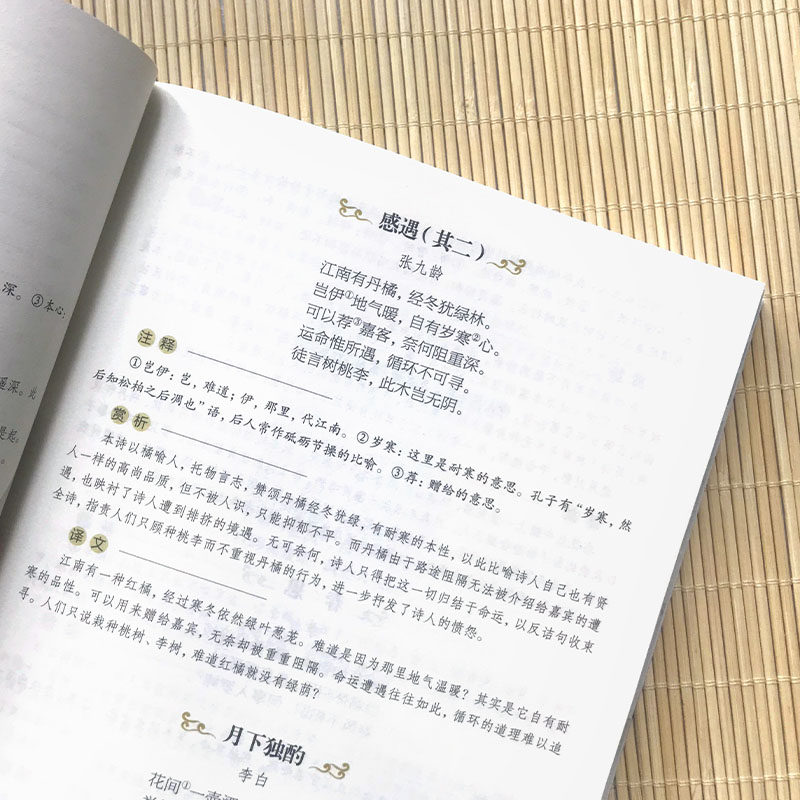 深。③本心:
遥深。此
是起。
感遇(其二)
张九龄
江南有丹橘,经冬犹绿林。
岂伊①地气暖,自有岁寒②心。
可以荐③嘉客,奈何阻重深。
运命惟所遇,循环不可寻。
徒言树桃李,此木岂无阴。
注释
①岂伊:岂,难道;伊,那里,代江南。②岁寒:这里是耐寒的意思。孔子有“岁寒,然
后知松柏之后凋也”语,后人常作砥砺节操的比喻。③荐:赠给的意思。
赏析
本诗以橘喻人,托物言志,赞颂丹橘经冬犹绿,有耐寒的本性,以此比喻诗人自己也有贤
人一样的高尚品质,但不被人识,只能抑郁不平。而丹橘由于路途阻隔无法被介绍给嘉宾的遭
遇,也映衬了诗人遭到排挤的境遇。无可奈何,诗人只得把这一切归结于命运,以反诘句收束
全诗,指责人们只顾种桃李而不重视丹橘的行为,进一步抒发了诗人的愤怨。
译文
江南有一种红橘,经过寒冬依然绿叶葱茏。难道是因为那里地气温暖?其实是它自有耐
寒的品性。可以用来赠给嘉宾,无奈却被重重阻隔。命运遭遇往往如此,循环的道理难以追
寻。人们只说栽种桃树、李树,难道红橘就没有绿荫?
月下独酌
李白
花间①一壶酒